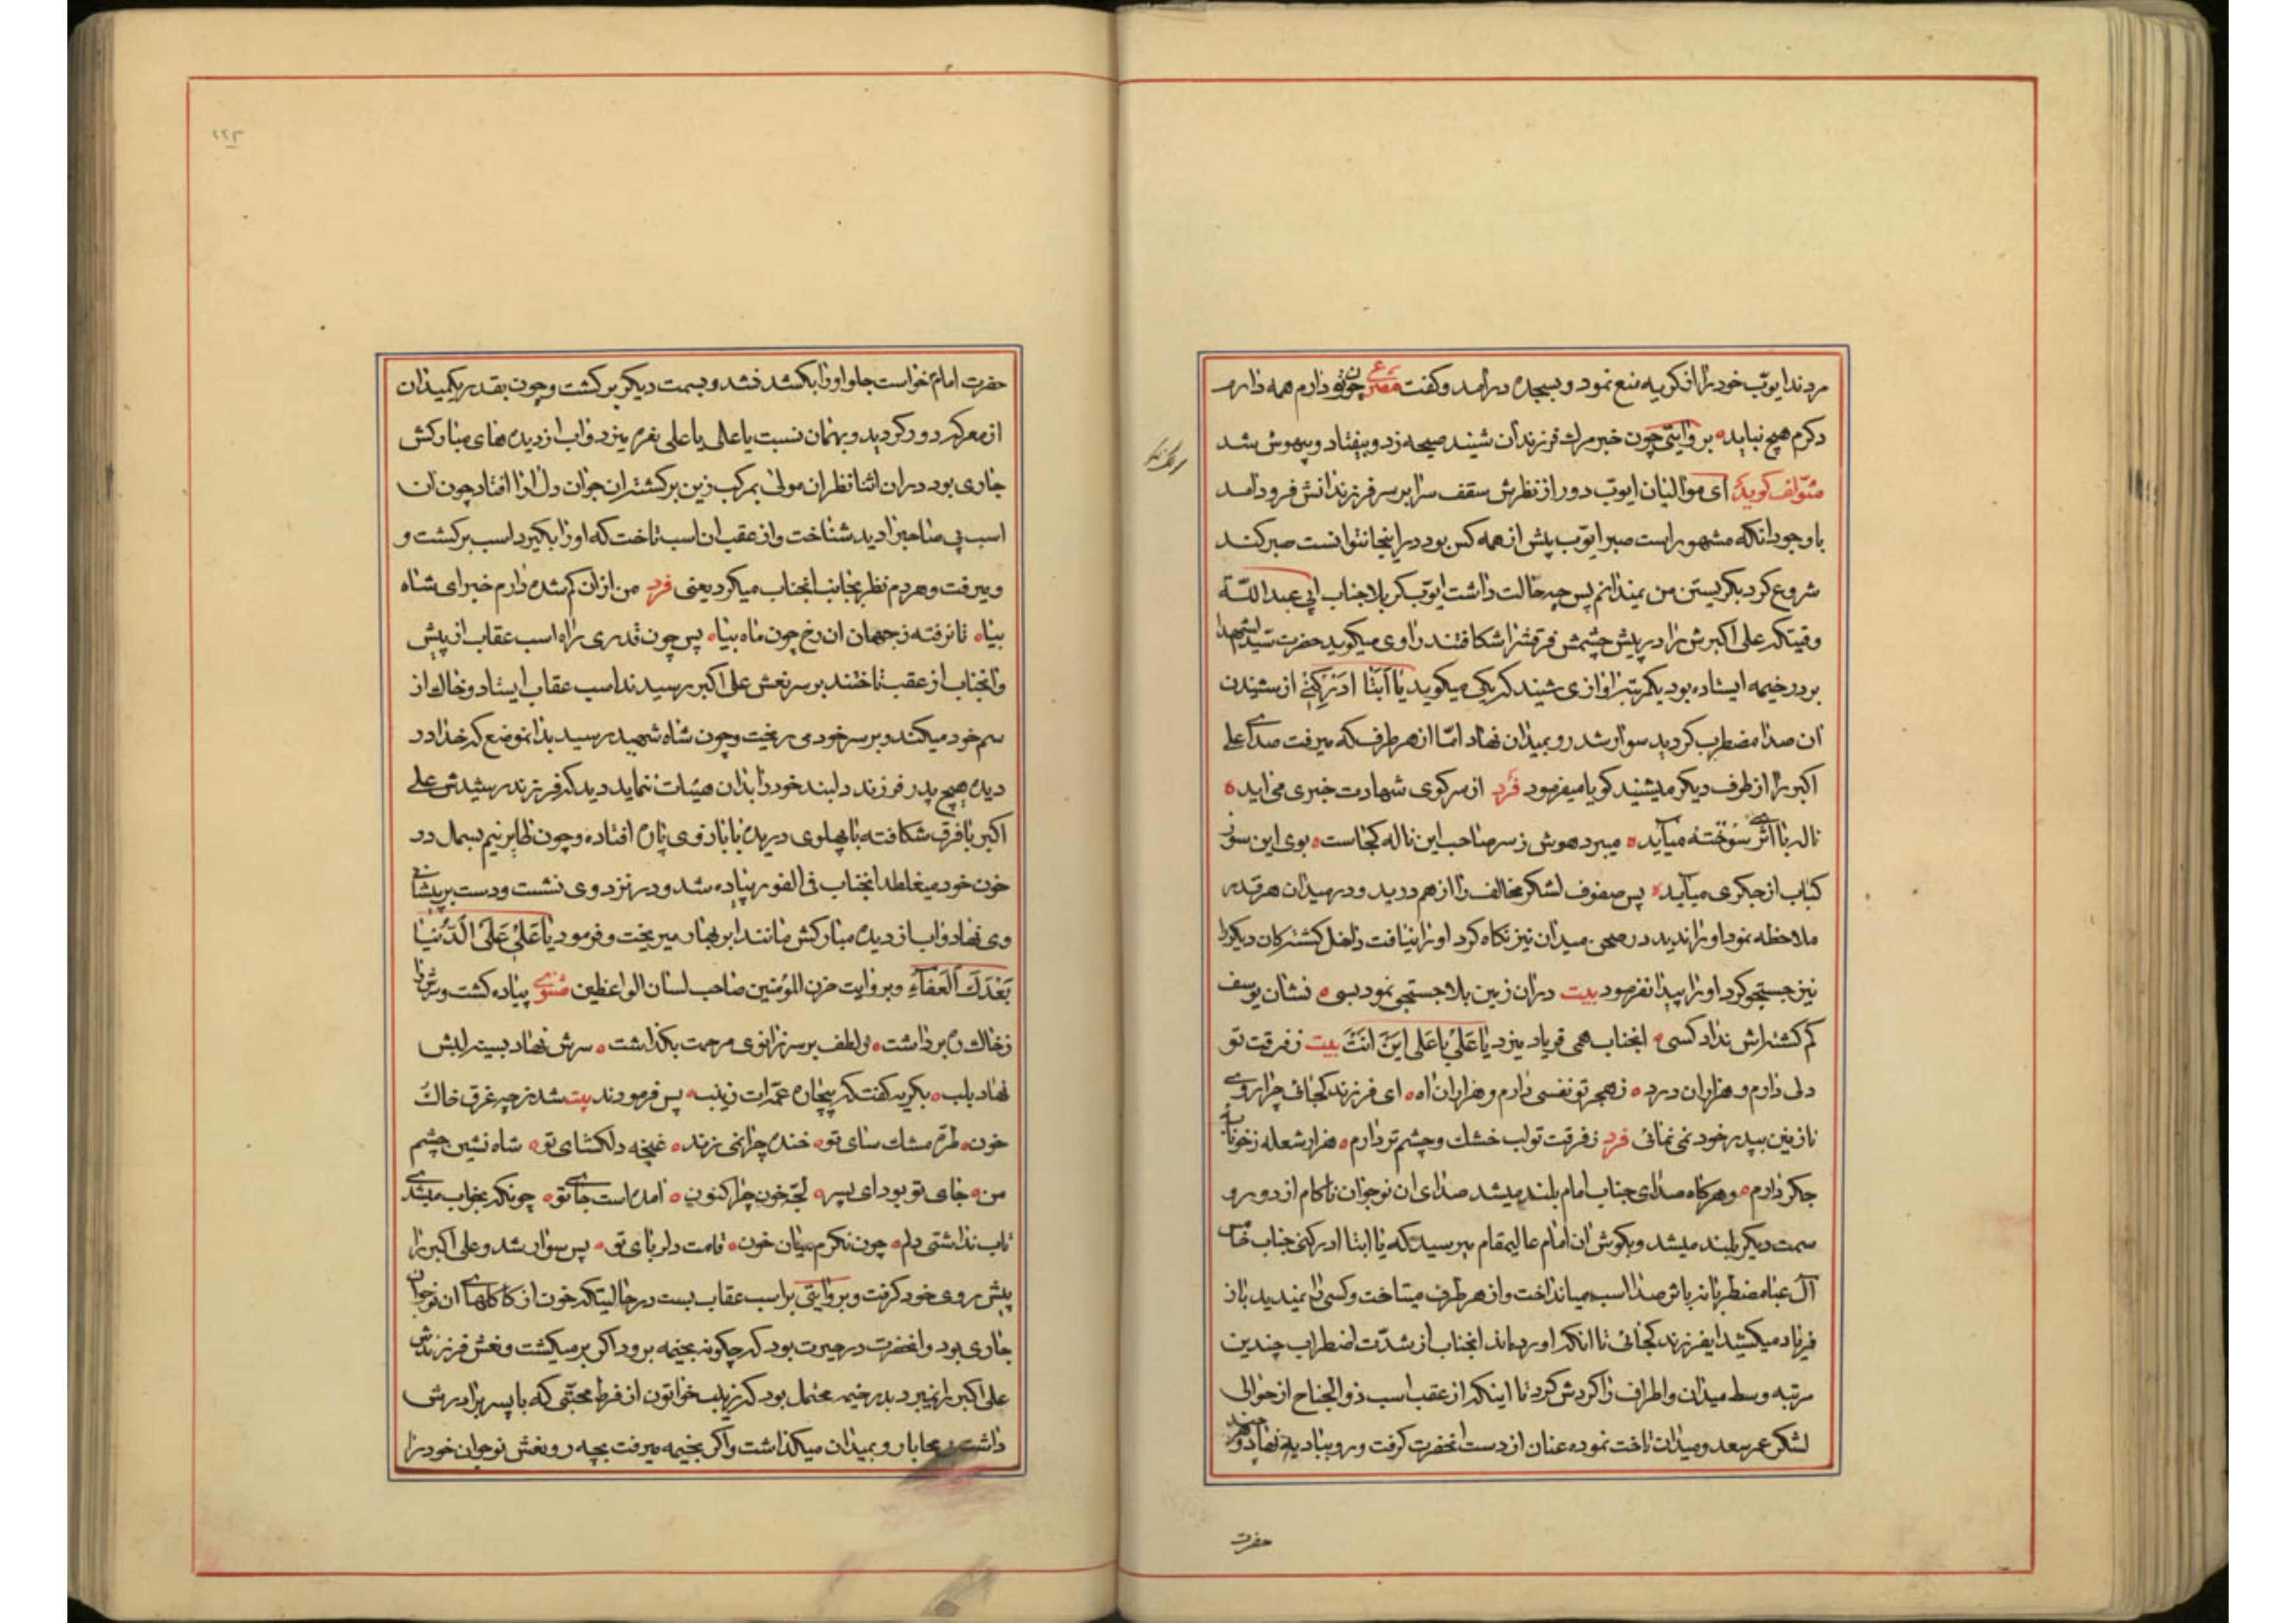 مردند ایوب خود را از کریه منع نمود و بسجده درآمد و کفت مصرع چون تو دارم همه دارم
دکرم هیچ نباید بروایتی چون خبر مرك فرزندان شنید صیحه زد و بیفتاد و بیهوش شد
مؤلف کوید ای موالیان ایوب دور از نظرش سقف سرا بر سر فرزندانش فرود آمد
با وجود آنکه مشهور است صبر ایوب پیش از همه کس بود در اینجا نتوانست صبر کند
شروع کرد بکریستن من نمیدانم پس چه حالت داشت ایوب کربلا جناب ابی عبدالله
وقتیکه علی اکبرش را در پیش چشمش فرقش را شکافتند راوی میکوید حضرت سید الشهدا
بر در خیمه ایستاده بود یکمرتبه آوازی شنید که یکی میکوید یا ابتا ادرکنی از شنیدن
ان صدا مضطرب کردید سوار شد رو بمیدان نهاد امّا از هر طرف که میرفت صدای علی
اکبر را از طرف دیکر میشنید کویا میفرمود فرد از سر کوی شهادت خبری می اید
ناله با اثر سوخته میآید میبرد هوش ز سر صاحب این ناله کجاست بوی این سوز
کباب از جکری میآید پس صفوف لشکر مخالف را از هم درید و در میدان هر قدر
ملاحظه نمود او را ندید در صحن میدان نیز نکاه کرد او را نیافت داخل کشتکان دیکر را
نیز جستجو کرد او را پیدا نفرمود بیت در ان زمین بلا جستجی نمود بسی نشان یوسف
کم کشته اش نداد کسی انجناب همی فریاد میزد یا علی یا علی این انت بیت ز فرقت تو
دلی دارم و هزاران درد ز هجر تو نفسی دارم و هزاران اه ای فرزند کجائی چرا روی
نازنین بپدر خود نمی نمائی فرد ز فرقت تو لب خشك و چشم تر دارم هزار شعله ز خونابه
جکر دارم و هر کاه صدای جناب امام بلند میشد صدای ان نوجوان ناکام از دور و
سمت دیکر بلند میشد و بکوش ان امام عالیمقام میرسید که یا ابتا ادرکنی جناب خامس
آل عبا مضطربانه باش صدا اسب میانداخت و از هر طرف میتاخت و کسی را نمیدید باز
فریاد میکشید ایفرزند کجائی تا انکه انجناب از شدّت اضطراب چندین
مرتبه وسط میدان و اطراف را کردش کرد تا اینکه از عقب اسب ذوالجناح از حوالی
لشکر عمر سعد و میدان تاخت نموده عنان از دست انحضرت کرفت و رو ببادیه نهاد و هر چند
حضرت
حضرت امام خواست جلو او را بکشد نشد و بسمت دیکر برکشت و چون بقدر یکمیدان
از معرکه دور کردید و بهمان نسبت یا علی یا علی نعره میزد و اب از دیده های مبارکش
جاری بود در ان اثنا نظر ان مولی بمرکب زین برکشته ان جوان دل ارا افتاد چون ان
اسب بی صاحبرا دید شناخت و از عقب ان اسب تاخت که او را بکیرد اسب برکشت و
و میرفت و هر دم نظر بجانب انجناب میکرد یعنی فرد من از ان کم شده دارم خبر ای شاه
بیا تا نرفته ز جهان ان رخ چون ماه بیا پس چون قدری راه اسب عقاب از پیش
و انجناب از عقب تاختند بر سر نعش علی اکبر رسیدند اسب عقاب ایستاد و خاك از
سم خود میکند و بر سر خود می ریخت و چون شاه شهید رسید بدانموضع که خدا در
دیده هیچ پدر فرزند دلبند خود را بدان هیئات ننماید دید که فرزند رشیدش علی
اکبر با فرق شکافته با پهلوی دریده با بازوی پاره افتاده و چون طایر نیم بسمل در
خون خود میغلطد انجناب فی الفور پیاده شد و در نزد وی نشست و دست بر پیشانی
وی نهاد و اب از دیده مبارکش مانند ابر بهار میریخت و فرمود یا علی علی الدنیا
بعدك العفاء و بروایت حزن المؤمنین صاحب لسان الواعظین مثنوی پیاده کشت و سرش را
ز خاك ره برداشت و لطف بر سر زانوی مرحمت بکذاشت سرش نهاد بسینه لبش
نهاد بلب بکریه کفت که بیچاره عمّه ات زینب پس فرمودند بیت شد ز چه غرق خاك
خون طرّه مشك سای تو خنده چرا نمی زند غنچه دلکشای تو شاه نشین چشم
من جای تو بود ای پسر لجّه خون چرا کنون امده است جای تو چونکه بخواب میشدی
تاب نداشتی دلم چون نکرم میان خون قامت دلربای تو پس سوار شد و علی اکبر را
پیش روی خود کرفت و بروایتی بر اسب عقاب بست در حالتیکه خون از کاکلهای ان نوجوان
جاری بود و انحضرت در حیرت بود که چکونه بخیمه برود اکر برمیکشت و نعش فرزندش
علی اکبر را نمیبرد بدر خیمه محتمل بود که زینب خواتون از فرط محبّتی که با پسر برادرش
داشت بیمحابا رو بمیدان میکذاشت و اکر بخیمه میرفت بچه رو نعش نوجوان خود را